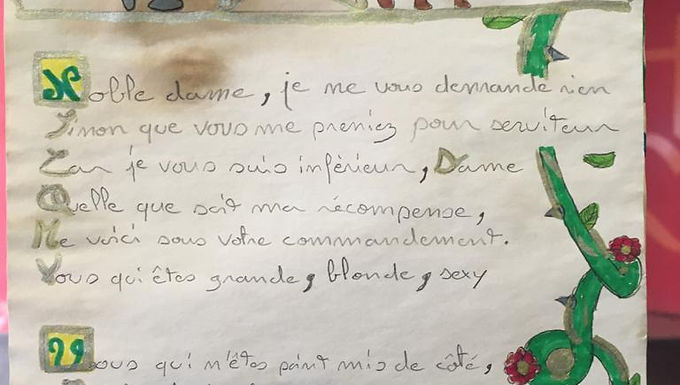 Noble dame, je ne vous demande rien
Sinon que vous me preniez pour serviteur
Car je vous suis inférieur, Dame
Quelle que soit ma récompense,
Me voici sous votre commandement.
Vous qui êtes grande, blonde, sexy
ous qui n'êtes point mis de côté,